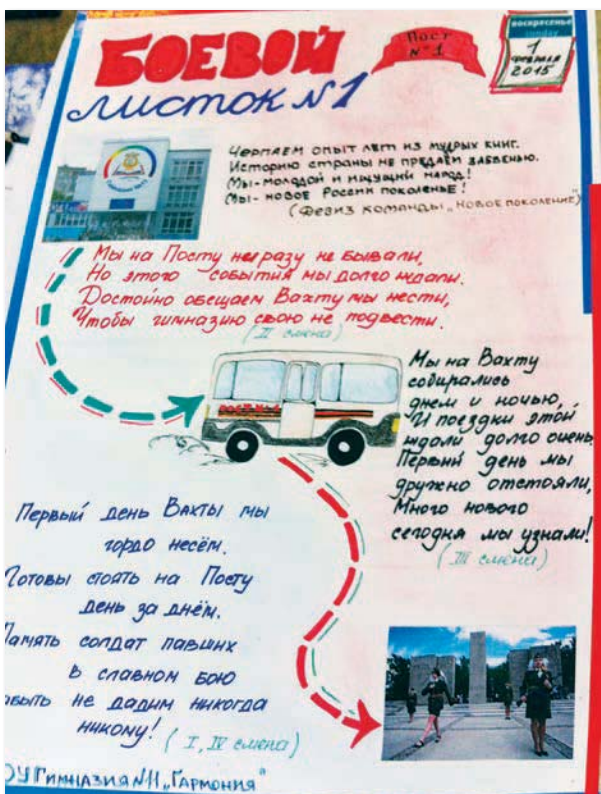 БОЕВОЙ
ЛИСТОК №1
Пост
№1
воскресенье
sunday
1
февраля
2015
Черпаем опыт лет из мудрых книг.
Историю страны не предаём забвенью.
Мы-молодой и ищущий народ!
Мы-новое России поколенье!
(Девиз команды „Новое поколение")
Мы на Посту ни разу не бывали,
Но этого события мы долго ждали.
Достойно обещаем Вахту мы нести,
Чтобы гимназию свою не подвести.
(II смена)
ПОСТ №1
Мы на Вахту
собирались
днем и ночью,
И поездки этой
ждали долго очень.
Первый день мы
дружно отстояли,
Много нового
сегодня мы узнали!
(III смена)
Первый день Вахты мы
гордо несём.
Готовы стоять на Посту
день за днём.
Память солдат павших
в славном бою
абыть не дадим никогда
никому! (I, IV смена)
ОУ Гимназия №11 „Гармония"